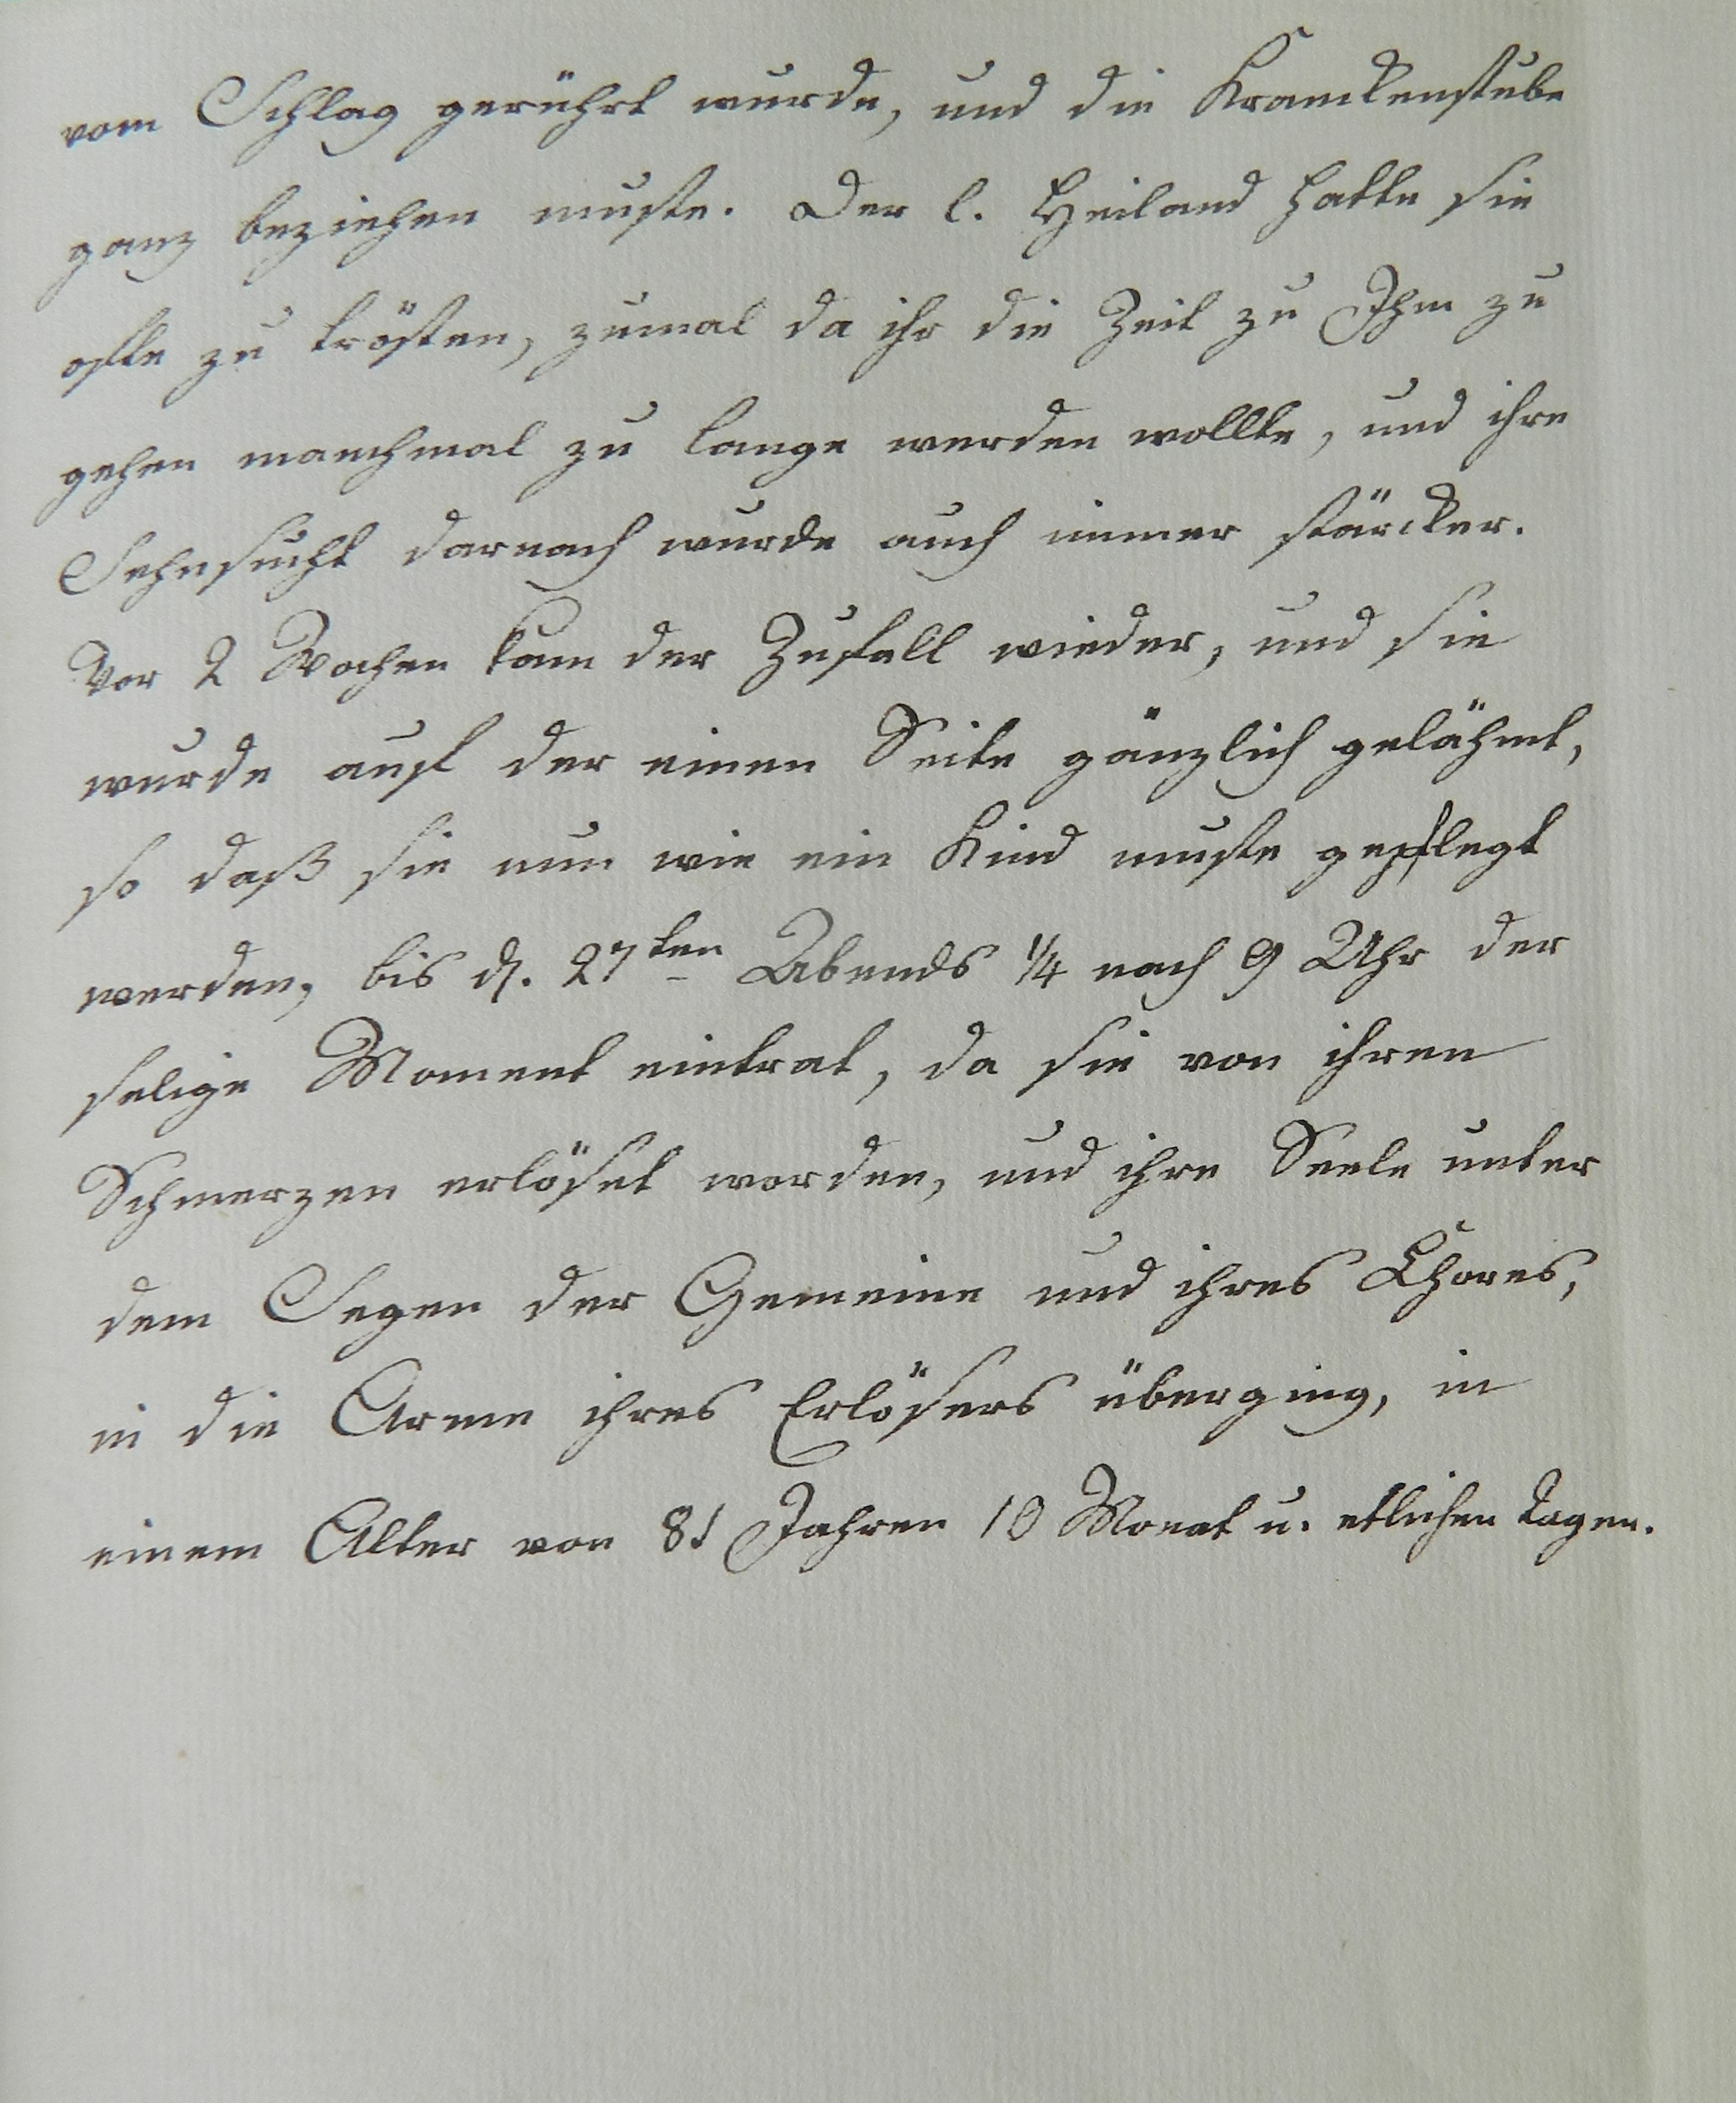 vom Schlag gerührt wurde, und die Kranckenstube
ganz beziehen muste. Der l. Heiland hatte sie
ofte zu trösten, zumal da ihr die Zeit zu Ihm zu
gehen manchmal zu lange werden wollte, und ihre
Sehnsucht darnach wurde auch immer stärcker.
Vor 2 Wochen kam der Zufall wieder, und sie
wurde auf der einen Seite gänzlich gelähmt,
so daß sie nun wie ein Kind muste gepflegt
werden, bis d. 27ten Abends 1/4 nach 9 Uhr der
selige Moment eintrat, da sie von ihren
Schmerzen erlöset worden, und ihre Seele unter
dem Segen der Gemeine und ihres Chores,
in die Arme ihres Erlösers überging, in
einem Alter von 81 Jahren 10 Monat u. etlichen Tagen.